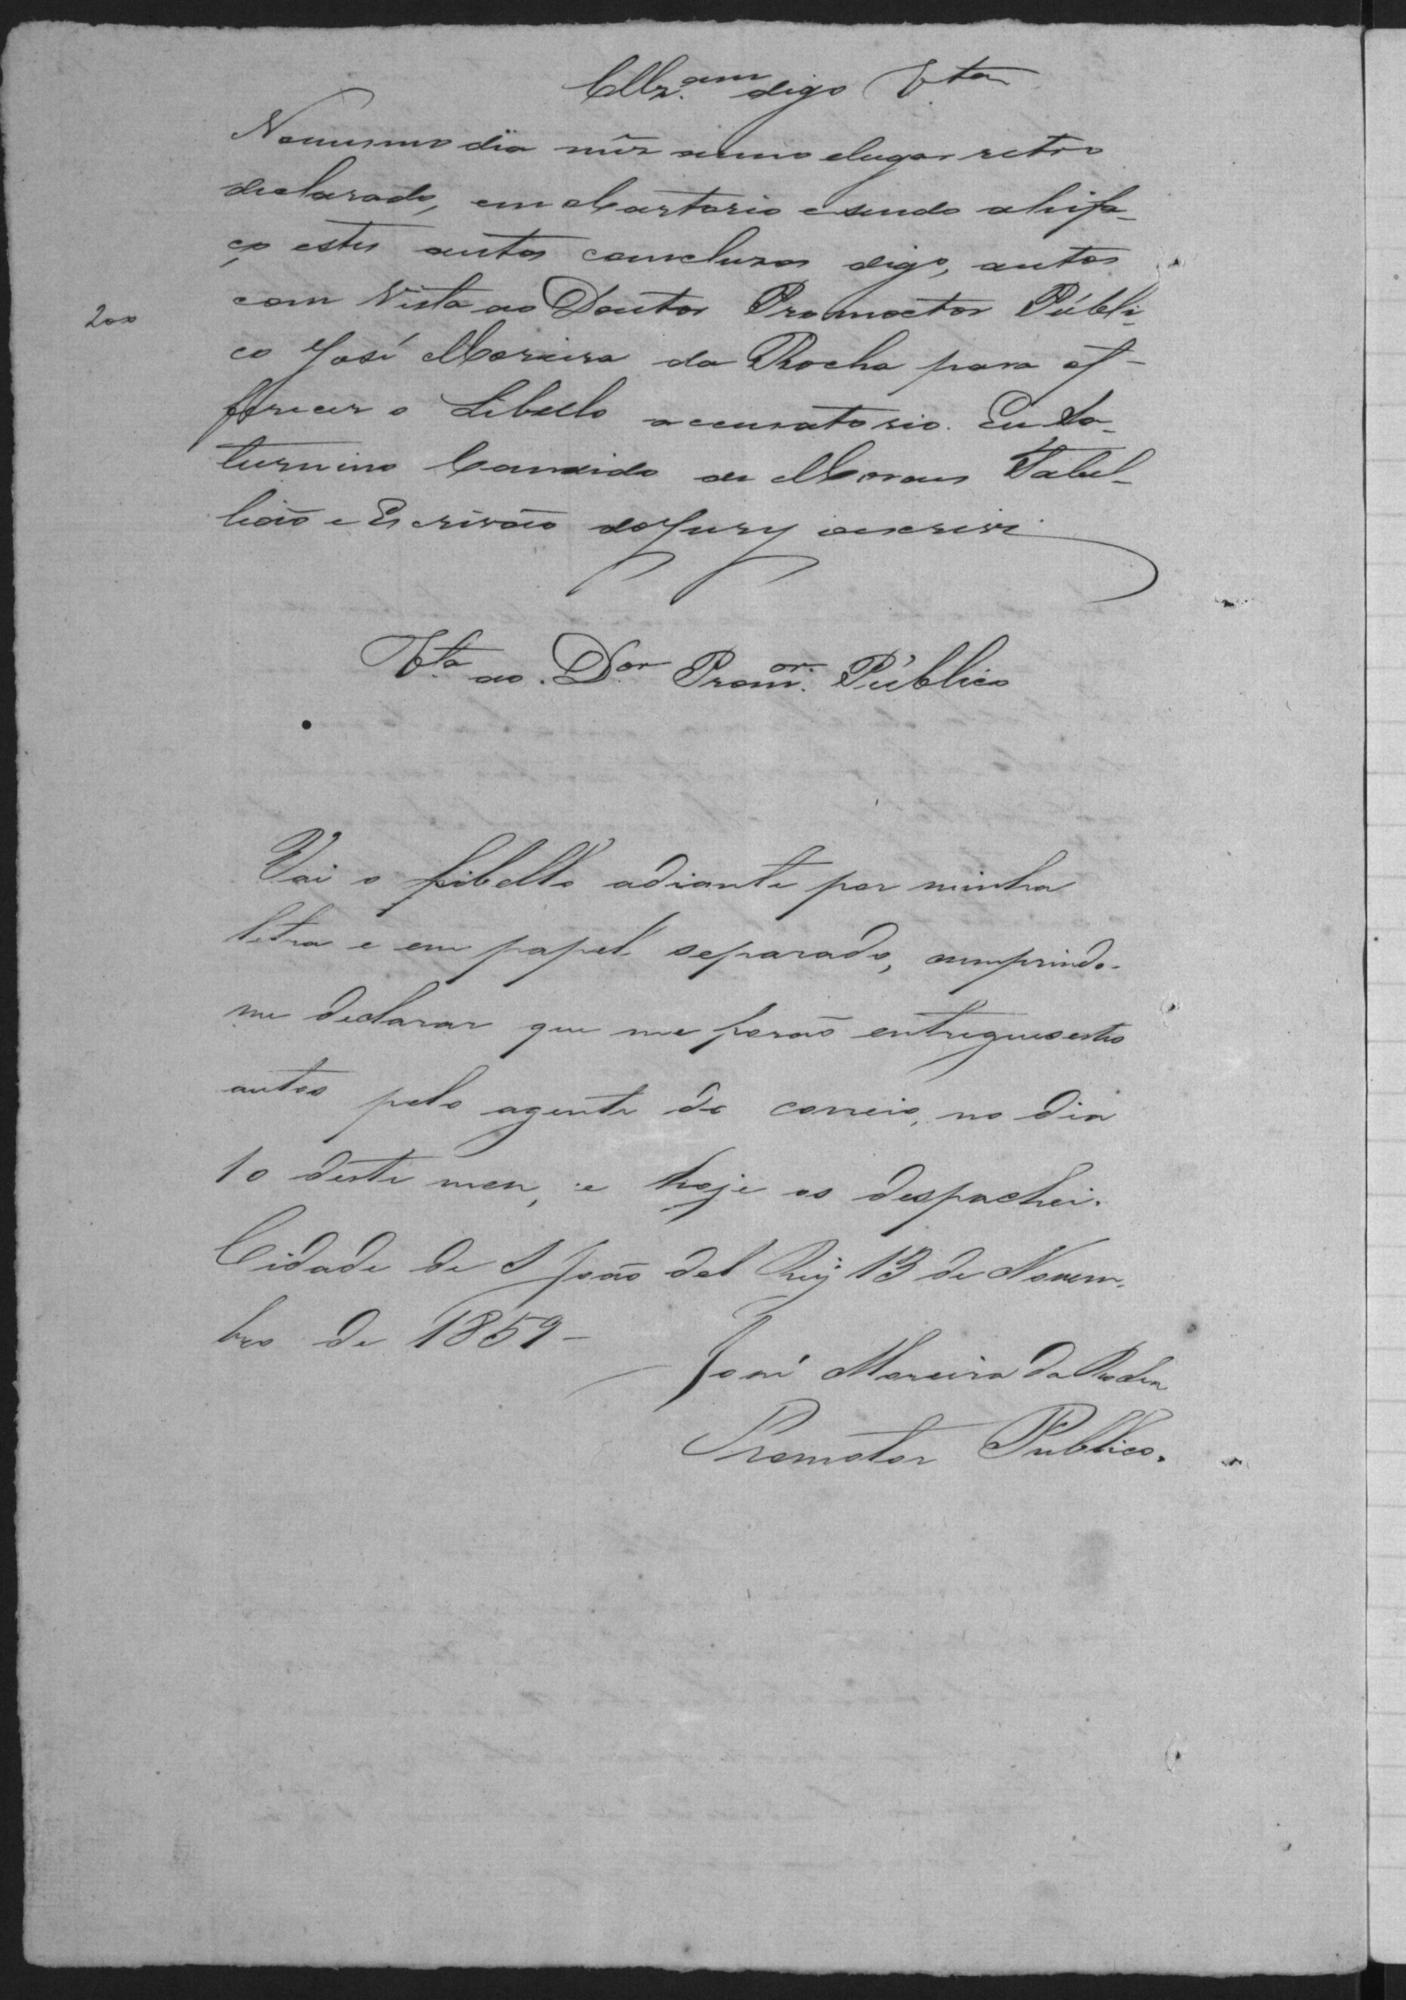 digo V.ta
No mesmo dia mez anno e lugar retro
declarado, em Cartorio e sendo ahi fa-
ço estes autos concluzos digo, autos
com Vista ao Doutor Promoctor Públi-
200
co José Moreira da Rocha para of-
ferecer o Libello accusatorio. Eu Sa-
turnino Candido de Moraes Tabel-
lião e Escrivão do Jury o escrivi
V.ta ao D.or Prom.or Público
Vai o libello adiante por minha
letra e em papel separado, cumprindo-
me declarar que me forão entregues estes
autos pelo agente do correio, no dia
10 deste mez, e hoje os despachei.
Cidade de S João del Rey 13 de Novem-
bro de 1859-
José Moreira da Rocha
Promotor Publico.